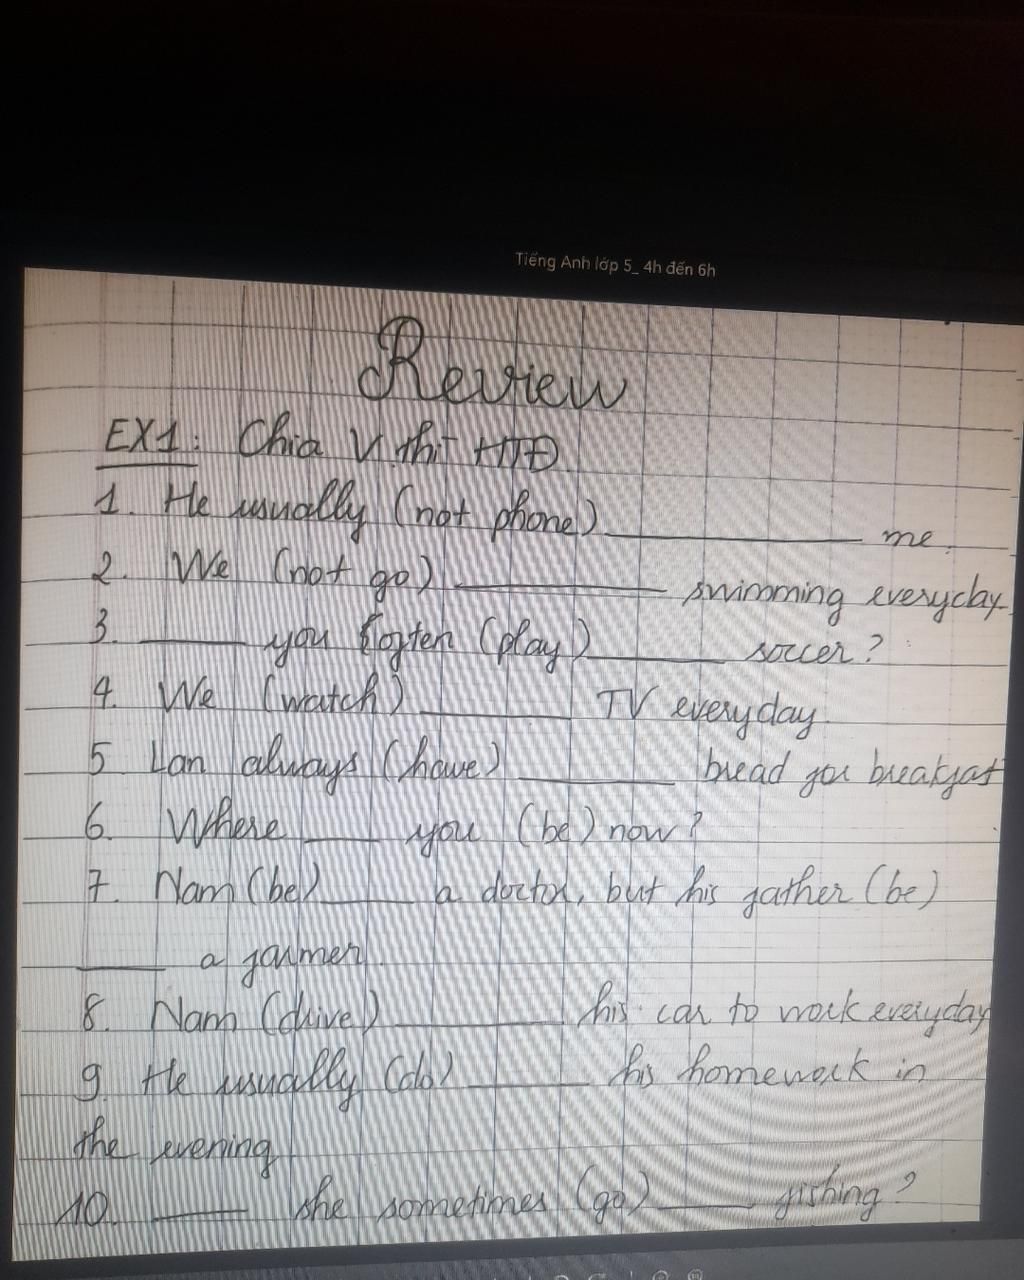 Tiếng Anh lớp 5_ 4h đến 6h
Review
EX1: Chia V thì HTĐ
1. He usually (not phone) __________ me.
2. We (not go) __________ swimming everyday.
3. ______ you often (play) ______ soccer?
4. We (watch) ________ TV everyday.
5 Lan always (have) ________ bread for breakfast
6. Where ____ you (be) now?
7. Nam (be) _____ a doctor, but his father (be)
_____ a farmer.
8. Nam (drive) _________ his car to work everyday
9. He usually (do) ______ his homework in
the evening
10. _____ she sometimes (go) _____ fishing?